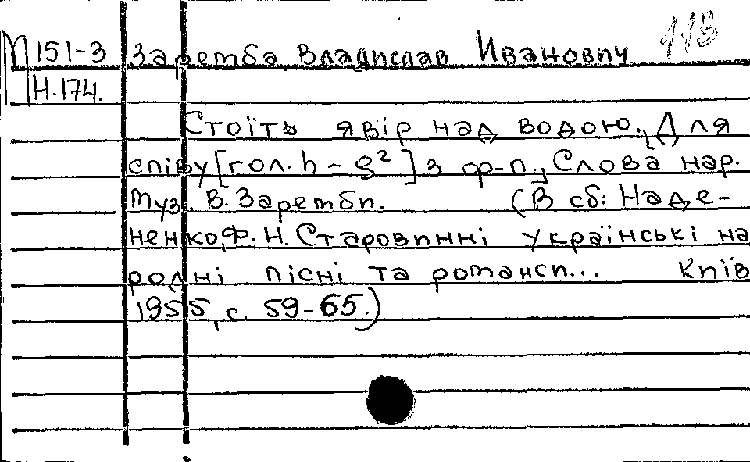 М 151-3 Заремба Владислав Иванович 113
Н.174.
Стоїть явір над водою. [Для
співу [гол. h - g²] з ф-п.] Слова нар.
Муз. В. Заремби. (В сб: Наде-
ненко Ф. Н. Старовинні українські на
родні пісні та романси... Київ
1955, с. 59-65.)